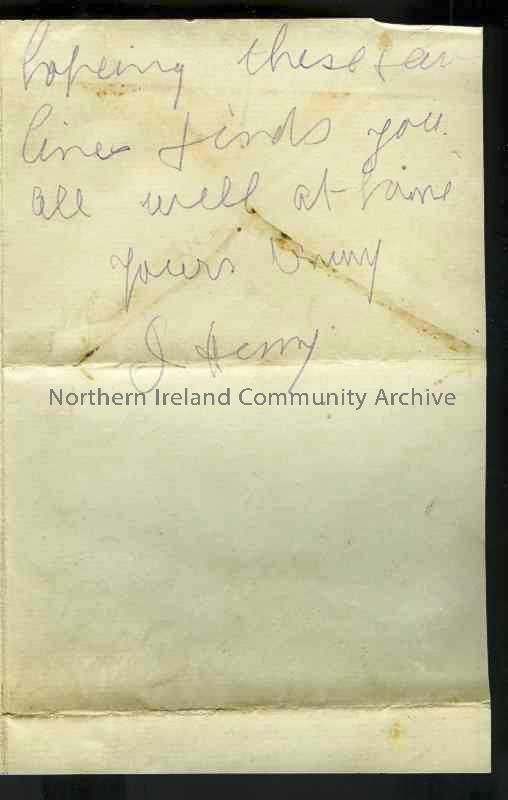 hopeing these few
lines finds you
all well at home
yours
J Henry
Northern Ireland Community Archive